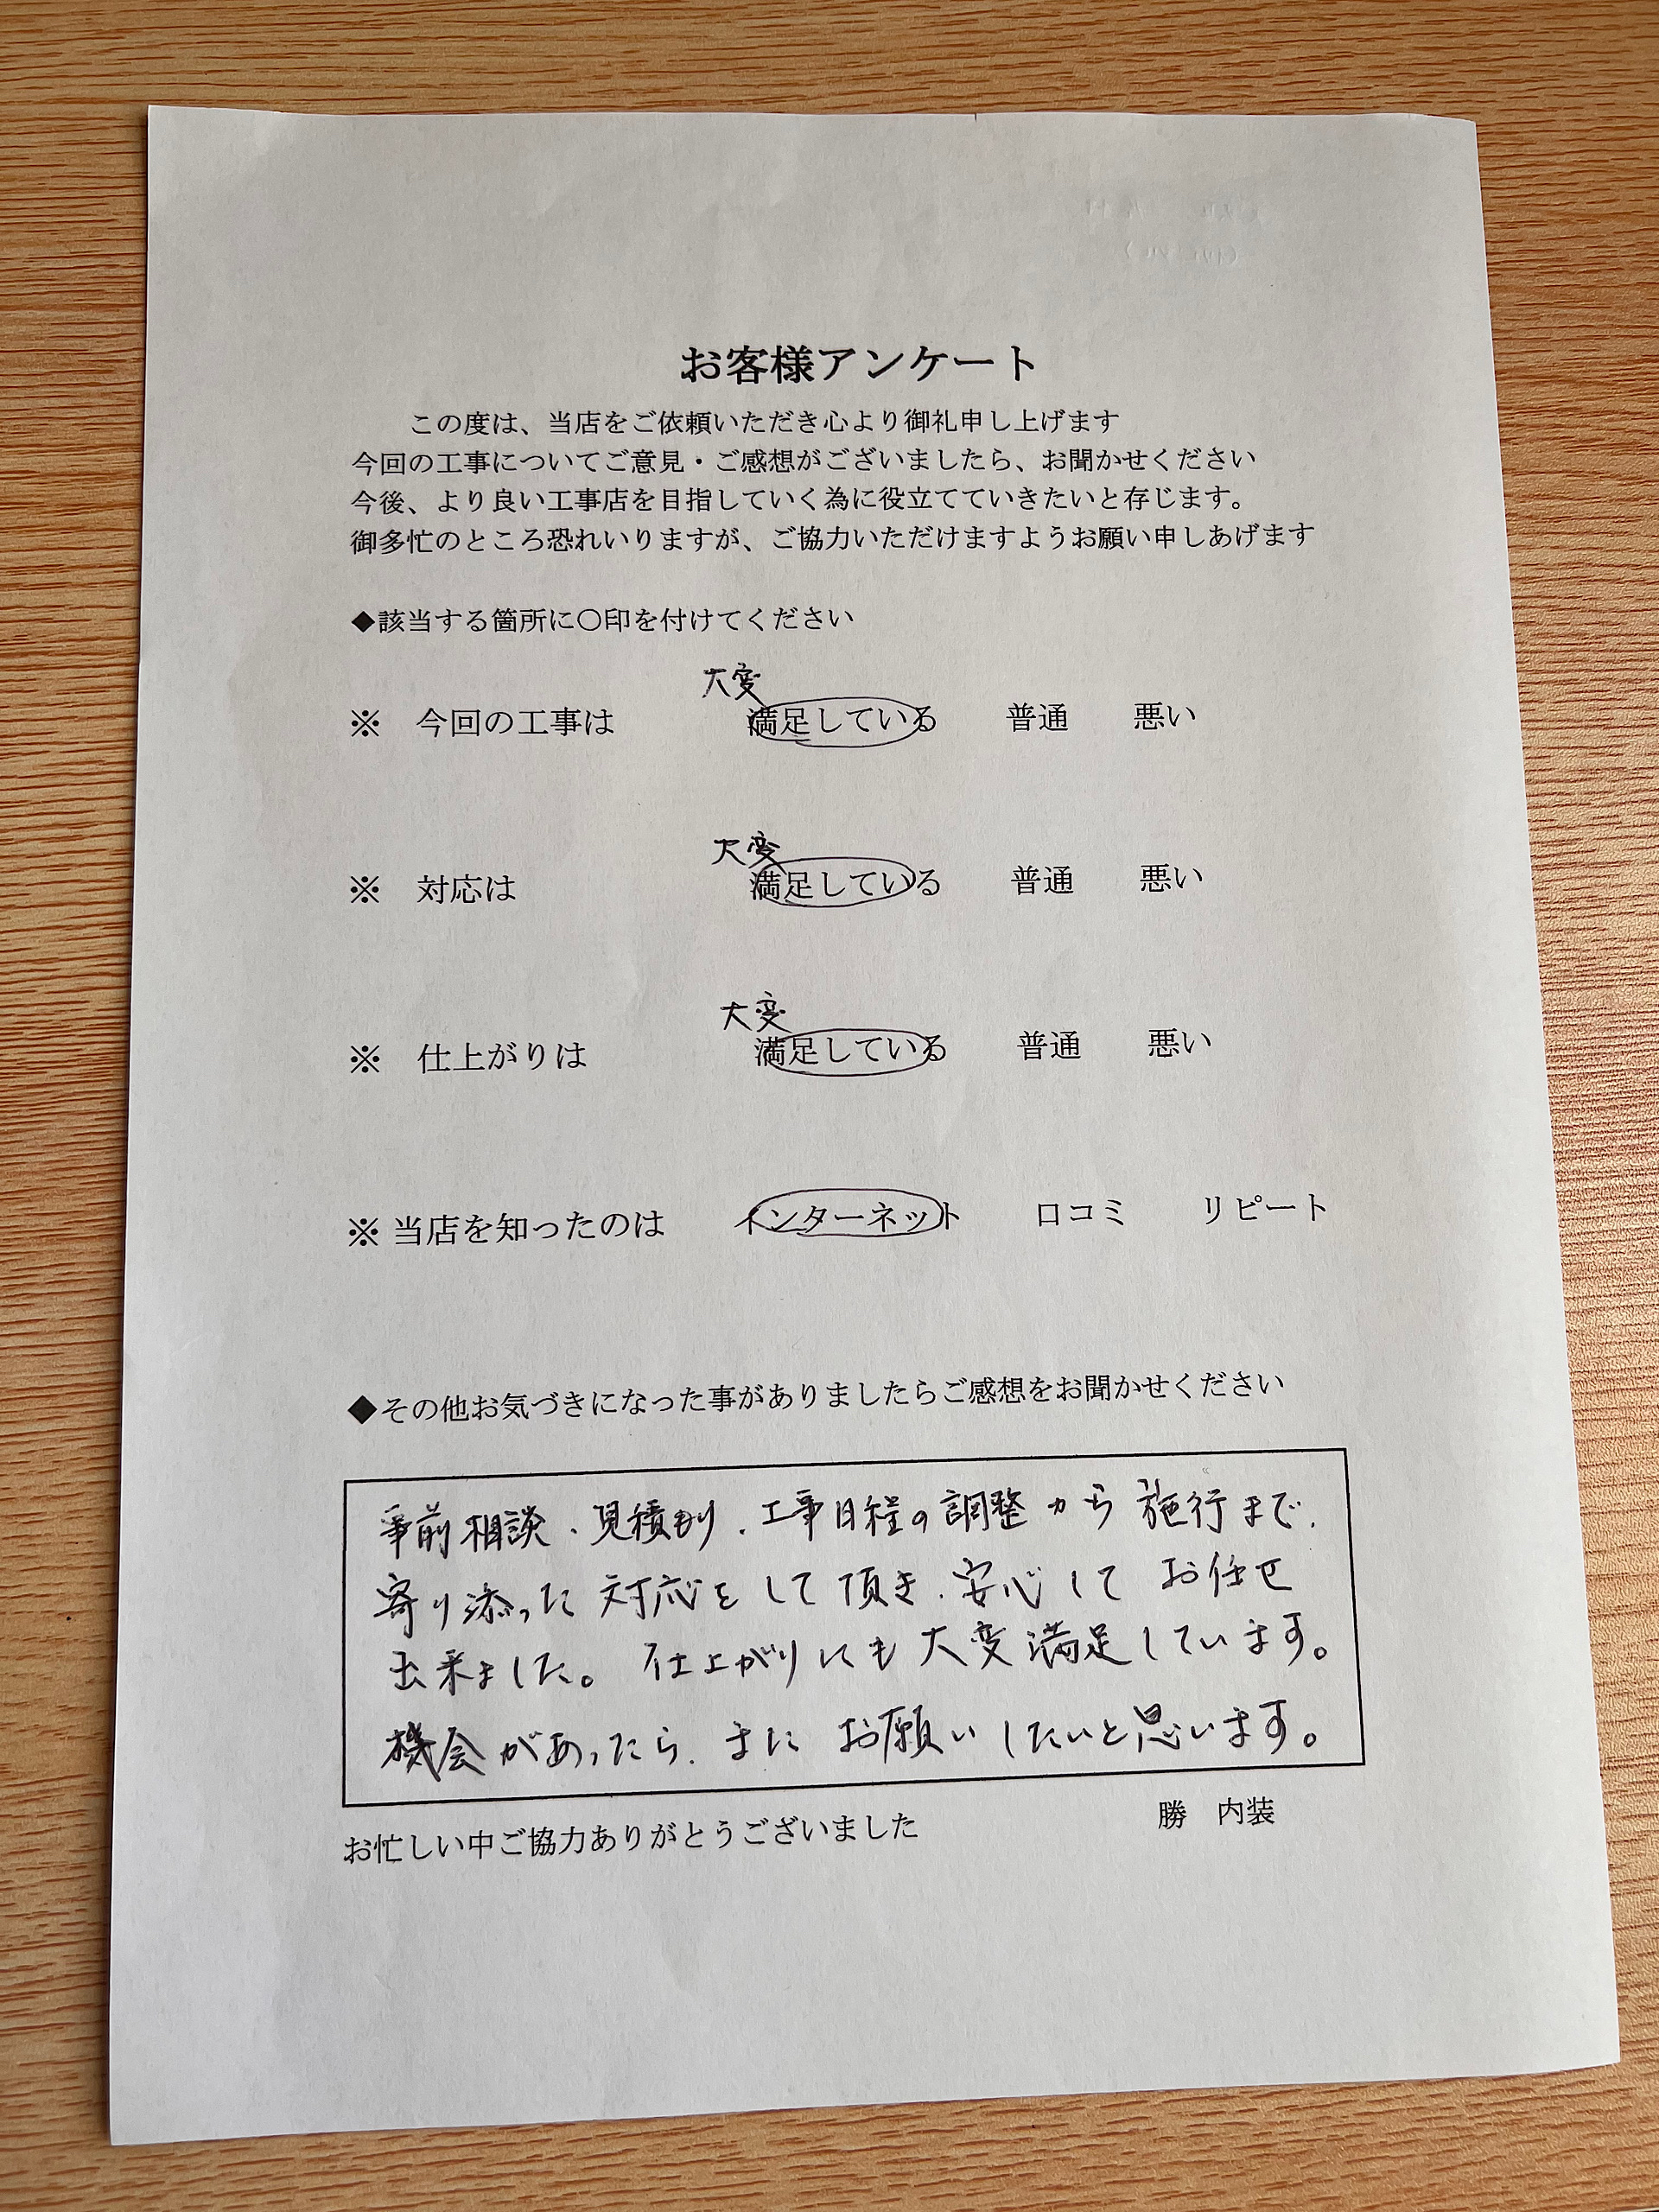 お客様アンケート
この度は、当店をご依頼いただき心より御礼申し上げます
今回の工事についてご意見・ご感想がございましたら、お聞かせください
今後、より良い工事店を目指していく為に役立てていきたいと存じます。
御多忙のところ恐れいりますが、ご協力いただけますようお願い申しあげます
◆該当する箇所に〇印を付けてください
大変
※ 今回の工事は 満足している 普通 悪い
大変
※ 対応は 満足している 普通 悪い
大変
※ 仕上がりは 満足している 普通 悪い
※ 当店を知ったのは インターネット 口コミ リピート
◆その他お気づきになった事がありましたらご感想をお聞かせください
事前相談、見積もり、工事日程の調整から施行まで、
寄り添った対応をして頂き、安心してお任せ
出来ました。仕上がりにも大変満足しています。
機会があったら、またお願いしたいと思います。
お忙しい中ご協力ありがとうございました 勝 内装